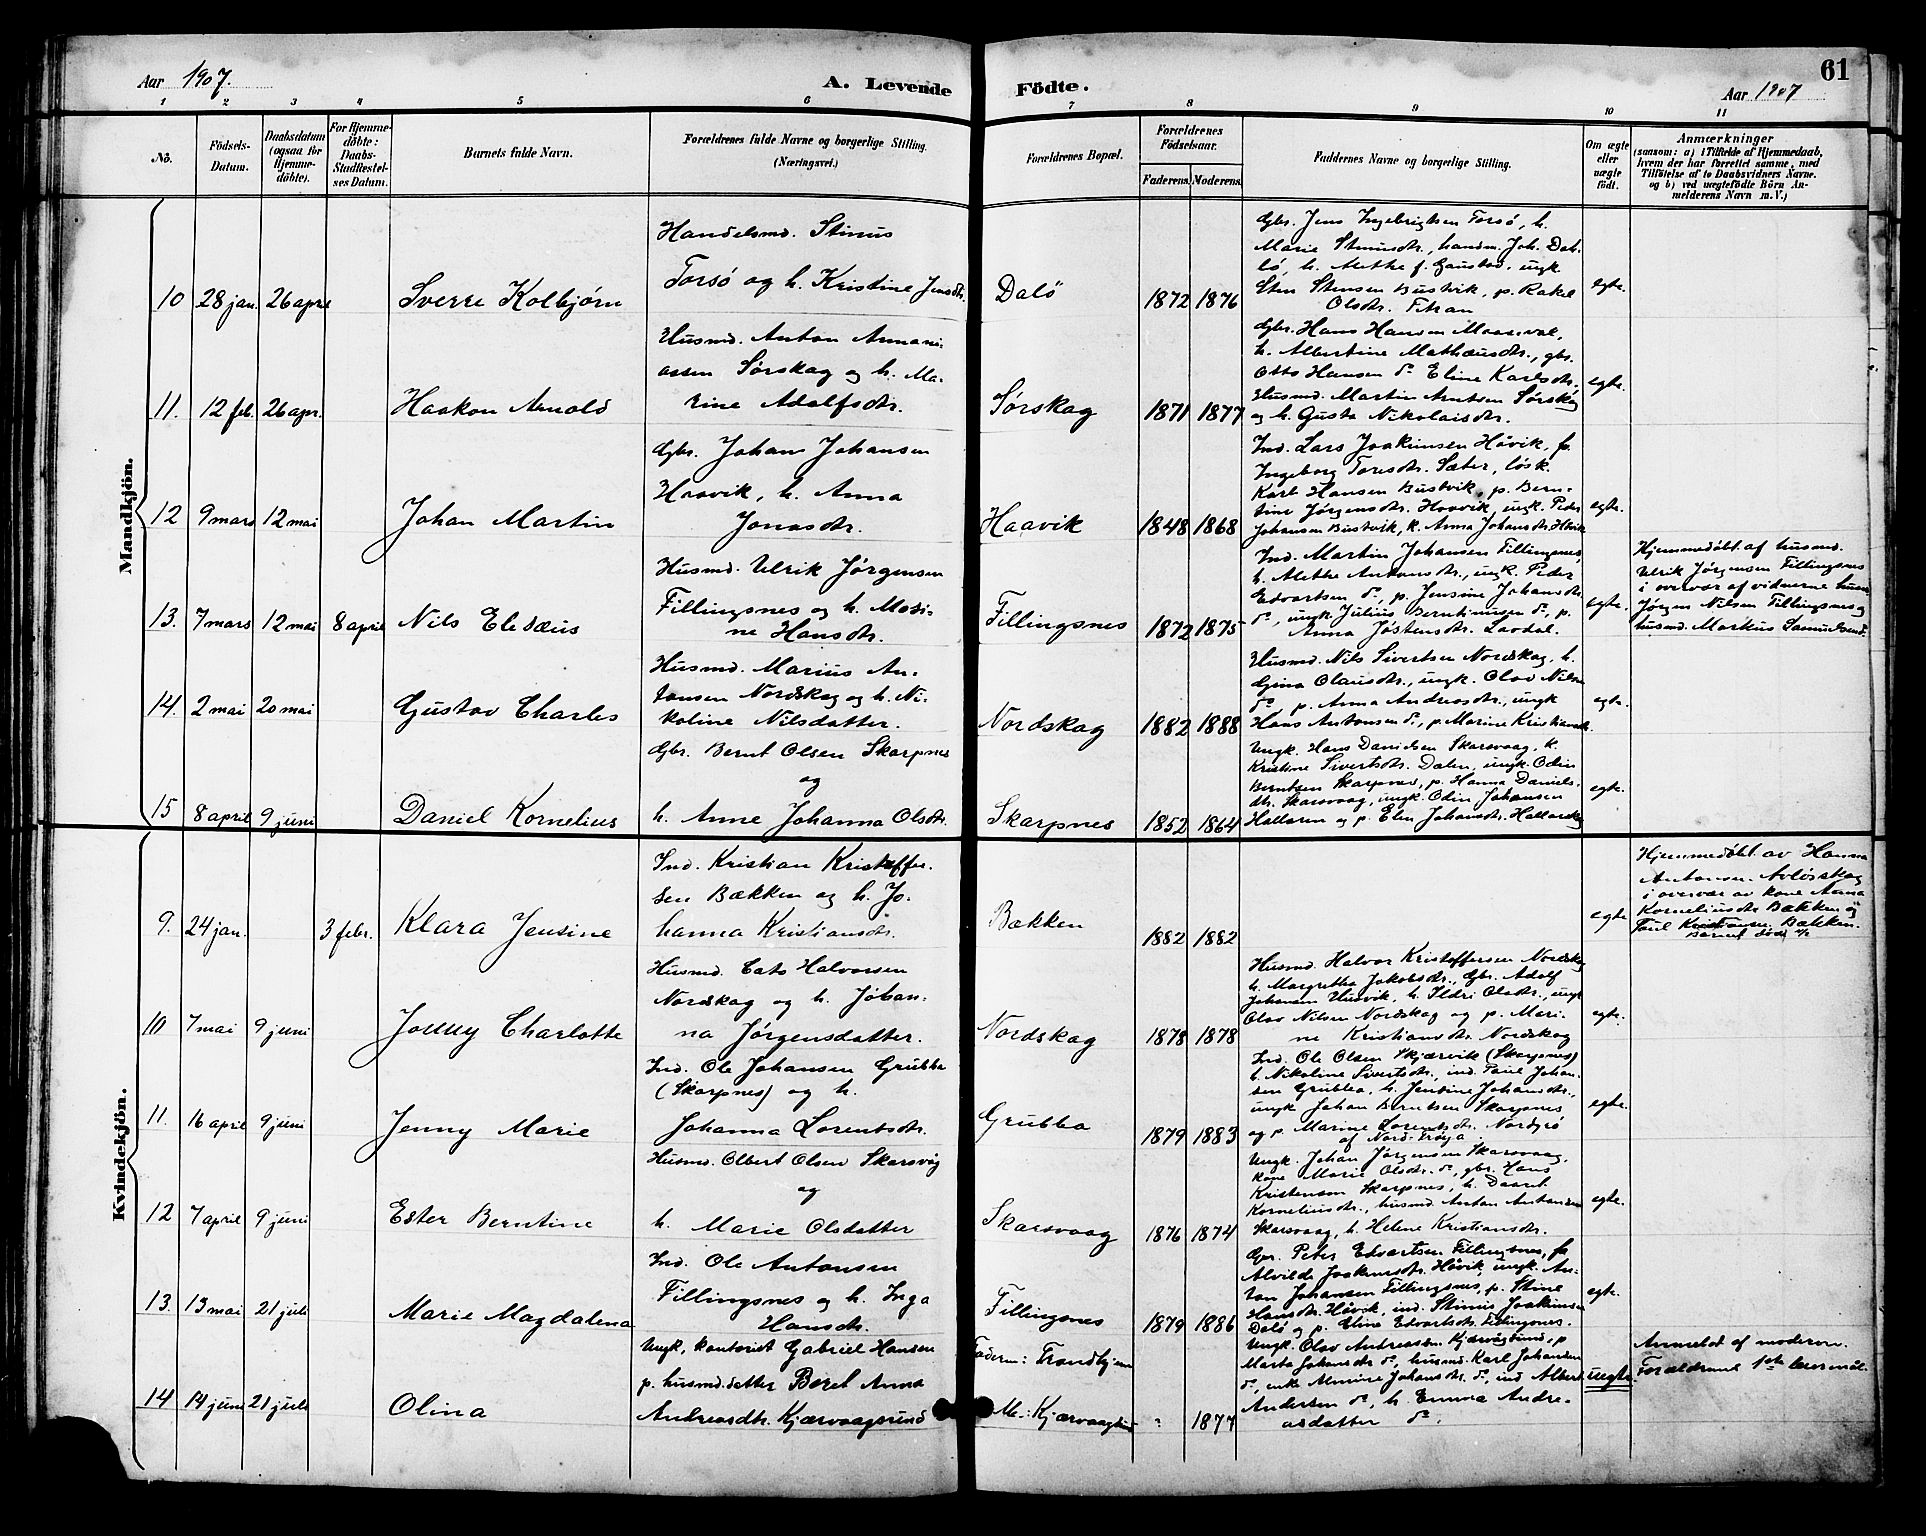 Aar 1907.
A. Levende Födte.
Aar 1907
61
1 2 3 4 5 6 7 8 9 10 11
No.
Födsels-Datum.
Daabsdatum (ogsaa for Hjemme-döbte).
For Hjemme-döbte: Daabs-Stadfæstel-ses Datum.
Barnets fulde Navn.
Forældrenes fulde Navne og borgerlige Stilling.
(Næringsvei.)
Forældrenes Bopæl.
Forældrenes Födselsaar.
Faderens. Moderens.
Faddernes Navne og borgerlige Stilling.
Om ægte eller uægte födt.
Anmærkninger
(saasom: a) i Tilfælde af Hjemmedaab,
hvem der har forrettet samme, med
Tilföielse af to Daabsvidners Navne.
og b) ved uægtefödte Börn An-
melderens Navn m. V.)
Mandkjön.
10 28 jan. 26 april Sverre Kolbjørn
Handelsmd. Stinus
Torsø og h. Kristine Jensdtr.
Dalø 1872 1876
Gbr. Jens Ingebrigtsen Torsø, h.
Marie Stinusdtr., handm. Joh. Dal-
lø, h. Methe f. Gaustad, ungk
Sten Stensen Bustvik, p. Rakel
Olsdtr. Titran
egte.
11. 12 feb. 26 apr. Haakon Arnold
Husmd. Anton Annani-
assen Sørskag og h. Ma-
rine Adolfsdtr.
Sørskag 1871 1877
Gbr. Hans Hansen Maasøval,
h. Albertine Mathæusdtr., gbr.
Otto Hansen do Eline Karlsdtr.,
Husmd. Martin Arntsen Sørskag
og h. Gusta Nikolaisdtr.
egte.
12 9 mars 12 mai Johan Martin
Gbr. Johan Johansen
Haavik, h. Anna
Jonasdtr.
Haavik 1848 1868
Ind. Lars Joakimsen Håvik, fr.
Ingeborg Toresdtr. Sæter, løsk.
Karl Hansen Bustvik, p. Bern-
tine Jørgensdtr. Haavik, ungk. Peder
Johansen Bustvik, k. Anna Johansdtr. Håvik
egte.
13. 7 mars 12 mai 8 april Nils Elesæus
Husmd. Ulrik Jørgensen
Fillingsnes og h. Masi-
ne Hansdtr.
Fillingsnes 1872 1875
Ind. Martin Johansen Fillingsnes,
h. Methe Antonsdtr., ungk. Peder
Edvartsen do, p. Jensine Johansdtr.
do, ungk Julius Berntinusen do, p.
Anna Jøstensdtr. Lavdal.
egte.
Hjemmedøbt af husmd.
Ulrik Jørgensen Fillingsnes
i overvær af vidnerne husm
Jørgen Nilsen Fillingsnes og
husmd. Markus Samuelsen do.
14. 2 mai 20 mai Gustav Charles
Husmd. Marius An-
tonsen Nordskag og h. Ni-
koline Nilsdatter.
Nordskag 1882 1888
Husmd. Nils Sivertsen Nordskag, h.
Gina Olausdtr., ungk. Olav Nilsen
do, p. Anna Andreasdtr., ungk
Hans Antonsen do, p. Marine Kristiansdtr.
egte.
15 8 april 9 juni Daniel Kornelius
Gbr. Bernt Olsen Skarpnes
og
h. Anne Johanna Olsdtr.
Skarpnes 1852 1864
Ungk. Hans Danielsen Skarsvaag, k.
Kristine Sivertsdtr. Dalen, ungk. Odin
Berntsen Skarpnes, p. Hanna Daniels-
dtr. Skarsvaag, ungk. Odin Johansen
Hallaren og p. Elen Johansdtr. Hallarskag
egte.
Kvindekjön.
9. 24 jan. 3 febr. Klara Jensine
Ind. Kristian Kristoffer-
sen Bækken og h. Jo-
hanna Kristiansdtr.
Bækken 1882 1882
egte
Hjemmedøbt av Hanna
Antonsen Avløsskag
i overvær av kone Anna
Korneliusdtr Bækken og
Paul Kristiansen Bækken.
Barnet død
10 7 mai 9 juni Jonny Charlotte
Husmd. Cato Halvorsen
Nordskag og h. Johan-
na Jørgensdatter.
Nordskag 1878 1878
Husmd. Halvor Kristoffersen Nordskag
h. Margretha Jakobsdtr., Gbr. Adolf
Johansen Husvik, h. Ildri Olsdtr., ungk
Olav Nilsen Nordskag og p. Mari-
ne Kristiansdtr. Nordskag
egte.
11. 16 april 9 juni Jenny Marie
Ind. Ole Johansen Grubba
(Skarpnes) og h.
Johanna Lorentsdtr.
Grubba 1879 1883
Ind. Ole Olsen Skjærvik (Skarpnes)
h. Nikoline Sivertsdtr., ind. Paul Johan-
sen Grubba, h. Jensine Johansdtr.,
ungk Johan Berntsen Skarpnes
og p. Marine Lorentsdtr. Nordyrø
af Nord-Frøya.
egte.
12 7 april 9 juni Ester Berntine
Husmd. Olbert Olsen Skarsvåg
og
h. Marie Olsdatter
Skarsvaag 1876 1874
Ungk. Johan Jørgensen Skarsvaag,
kone Marie Olsdtr. do, gbr. Hans
Kristensen Skarpnes, h. Daaret
Korneliusdtr., husmd Anton Antonsen
Skarsvaag, h. Helene Kristiansdtr.
egte.
13. 13 mai 21 juli Marie Magdalena
Ind. Ole Antonsen
Fillingsnes og h. Inga
Hansdtr.
Fillingsnes 1879 1886
Gbr. Peter Edvartsen Fillingsnes, fr
Alvilde Joakimsdtr. Håvik, ungk. An-
ton Johansen Fillingsnes, p. Stine
Hansdtr. Håvik, ind. Stinus Joakimsen
Dalø og p. Eline Edvartsdtr. Fillingsnes.
egte.
14 14 juni 21 juli Olina
Ungk, kontorist Gabriel Hansen
p. husmd.datter Beret Anna
Andreasdtr. Kjærvaagsund
Faderen: Trondhjem
M.: Kjærvaagsund " 1877
Ungk. Olav Andreassen Kjærvågsund, p
Marta Johansdtr do, husmd. Karl Johansen
do, enke Almine Johansdtr. do, ind Albert
Andersen do, h. Emma Andre-
asdatter do.
uegte.
Anmeldt af moderen.
Forældrenes 1ste leiermål.